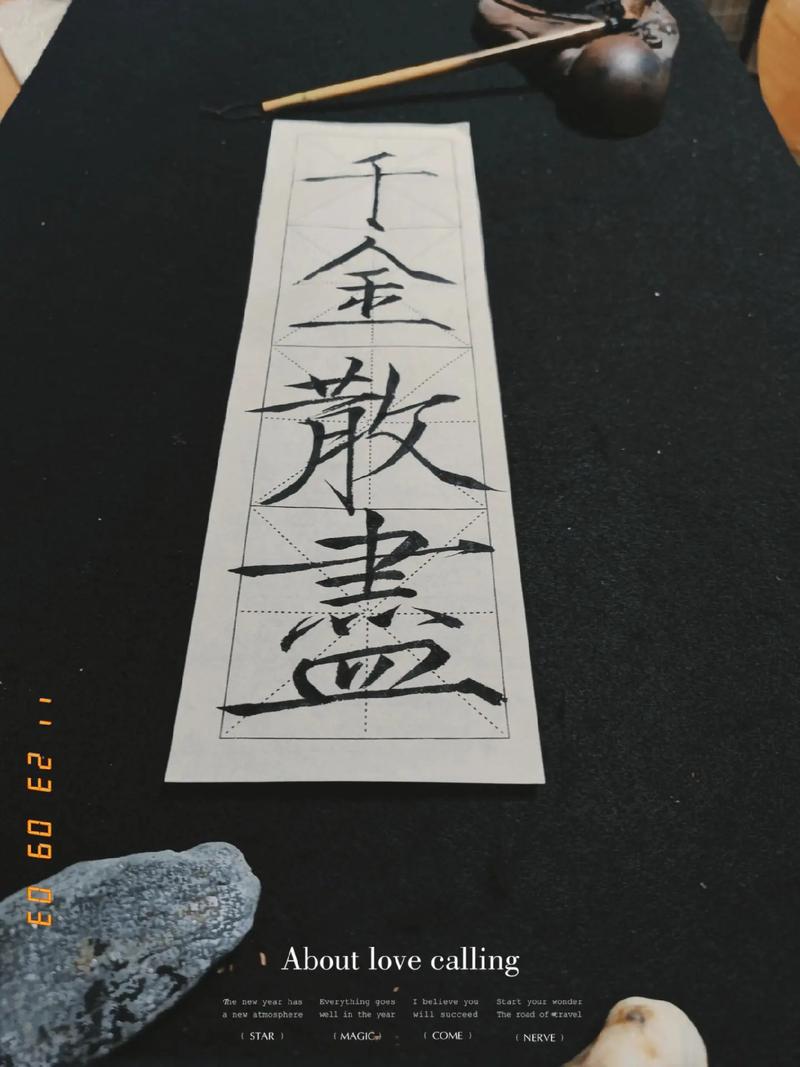 千金散盡
03 09 23 11
About love calling
The new year has a new atmosphere
( STAR )
Everything goes well in the year
( MAGIC )
I believe you will succeed
( COME )
Start your wonder The road of travel
( NERVE )